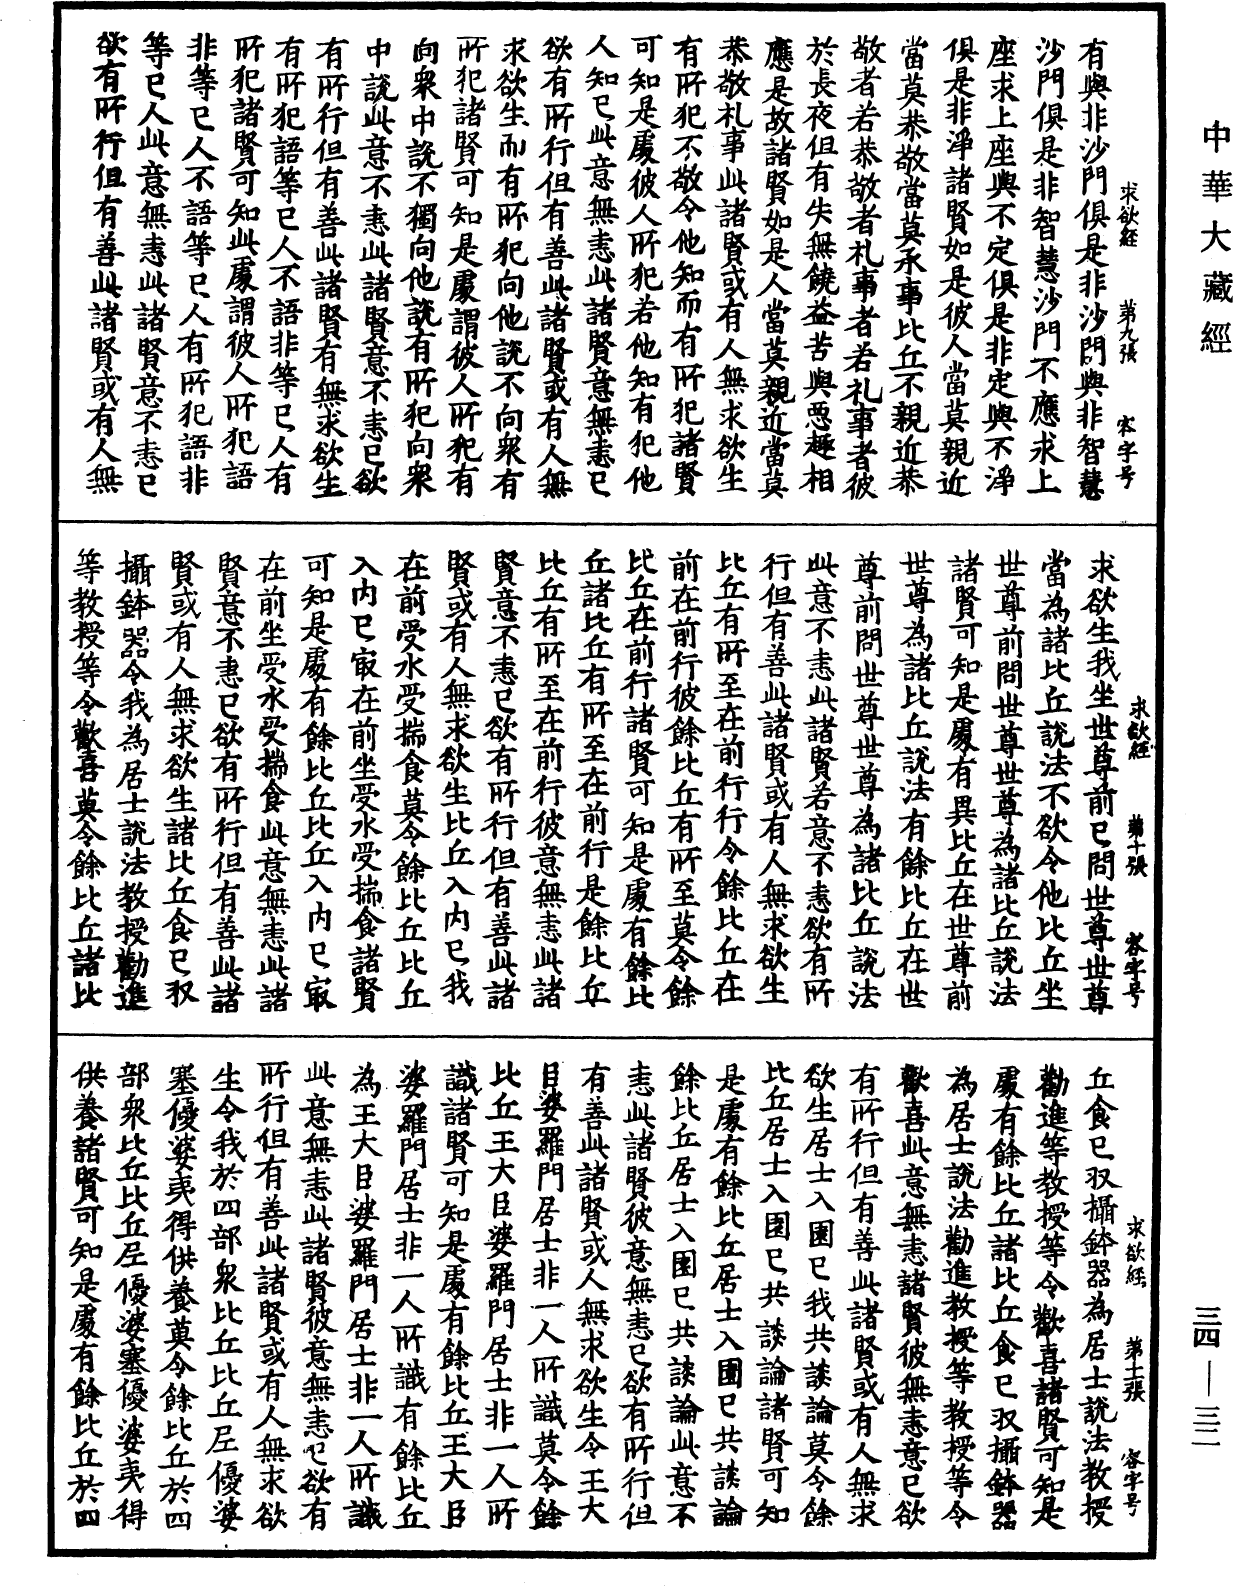 中華大藏經
求欲經 第九張 容字号
有與非沙門俱是非沙門與非智慧
沙門俱是非智慧沙門不應求上
座求上座與不定俱是非定與不淨
俱是非淨諸賢如是彼人當莫親近
當莫恭敬當莫承事比丘不親近恭
敬者若恭敬者礼事者若礼事者彼
於長夜但有失無饒益苦與惡趣相
應是故諸賢如是人當莫親近當莫
恭敬礼事此諸賢或有人無求欲生
有所犯不敬令他知而有所犯諸賢
可知是處彼人所犯若他知有犯他
人知已此意無恚此諸賢意無恚已
欲有所行但有善此諸賢或有人無
求欲生而有所犯向他說不向衆有
所犯諸賢可知是處謂彼人所犯有
向衆中說不獨向他說有所犯向衆
中說此意不恚此諸賢意不恚已欲
有所行但有善此諸賢有無求欲生
有所犯語等已人不語非等已人有
所犯諸賢可知此處謂彼人所犯語
非等已人不語等已人有所犯語非
等已人此意無恚此諸賢意不恚已
欲有所行但有善此諸賢或有人無
求欲經 第十張 容字号
求欲生我坐世尊前已問世尊世尊
當為諸比丘說法不欲令他比丘坐
世尊前問世尊世尊為諸比丘說法
諸賢可知是處有異比丘在世尊前
世尊為諸比丘說法有餘比丘在世
尊前問世尊世尊為諸比丘說法
此意不恚此諸賢若意不恚欲有所
行但有善此諸賢或有人無求欲生
比丘有所至在前行行令餘比丘在
前在前行彼餘比丘有所至莫令餘
比丘在前行諸賢可知是處有餘比
丘諸比丘有所至在前行是餘比丘
比丘有所至在前行彼意無恚此諸
賢意不恚已欲有所行但有善此諸
賢或有人無求欲生比丘入内已我
在前受水受揣食莫令餘比丘比丘
入内已㝡在前坐受水受揣食諸賢
可知是處有餘比丘比丘入内已㝡
在前坐受水受揣食此意無恚此諸
賢意不恚已欲有所行但有善此諸
賢或有人無求欲生諸比丘食已収
攝鉢器令我為居士說法教授勸進
等教授等令歡喜莫令餘比丘諸比
求欲經 第十一張 容字号
丘食已収攝鉢器為居士說法教授
勸進等教授等令歡喜諸賢可知是
處有餘比丘諸比丘食已収攝鉢器
為居士說法勸進教授等教授等令
歡喜此意無恚諸賢彼無恚意已欲
有所行但有善此諸賢或有人無求
欲生居士入園已我共談論莫令餘
比丘居士入園已共談論諸賢可知
是處有餘比丘居士入園已共談論
餘比丘居士入園已共談論此意不
恚此諸賢彼意無恚已欲有所行但
有善此諸賢或人無求欲生令王大
臣婆羅門居士非一人所識莫令餘
比丘王大臣婆羅門居士非一人所
識諸賢可知是處有餘比丘王大臣
婆羅門居士非一人所識有餘比丘
為王大臣婆羅門居士非一人所識
此意無恚此諸賢彼意無恚已欲有
所行但有善此諸賢或有人無求欲
生令我於四部衆比丘比丘尼優婆
塞優婆夷得供養莫令餘比丘於四
部衆比丘比丘尼優婆塞優婆夷得
供養諸賢可知是處有餘比丘於四
三四—三二